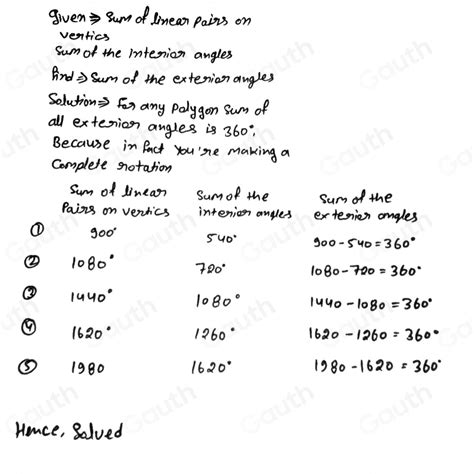 Given ⇒ Sum of linear pairs on
vertics
Sum of the interior angles
Find ⇒ Sum of the exterior angles
Solution ⇒ For any polygon sum of
all exterior angles is 360°,
Because in fact you're making a
Complete rotation
Sum of linear Pairs on vertics Sum of the interior angles Sum of the exterior angles
① 900° 540° 900-540=360°
② 1080° 720° 1080-720=360°
③ 1440° 1080° 1440-1080=360°
④ 1620° 1260° 1620-1260=360°
⑤ 1980 1620° 1980-1620=360°
Hence, Solved
Gauth